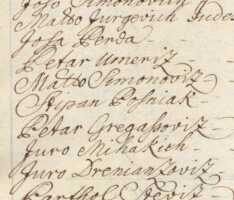 Joso Simonovich
Matto Jurgevich Indes
Josa Perda -
Petar Umeriz -
Matto Simonoviz -
Stipan Posniak -
Petar Gregassoviz -
Juro Mihakich -
Juro Dreniansoviz -
Barthol Steviz